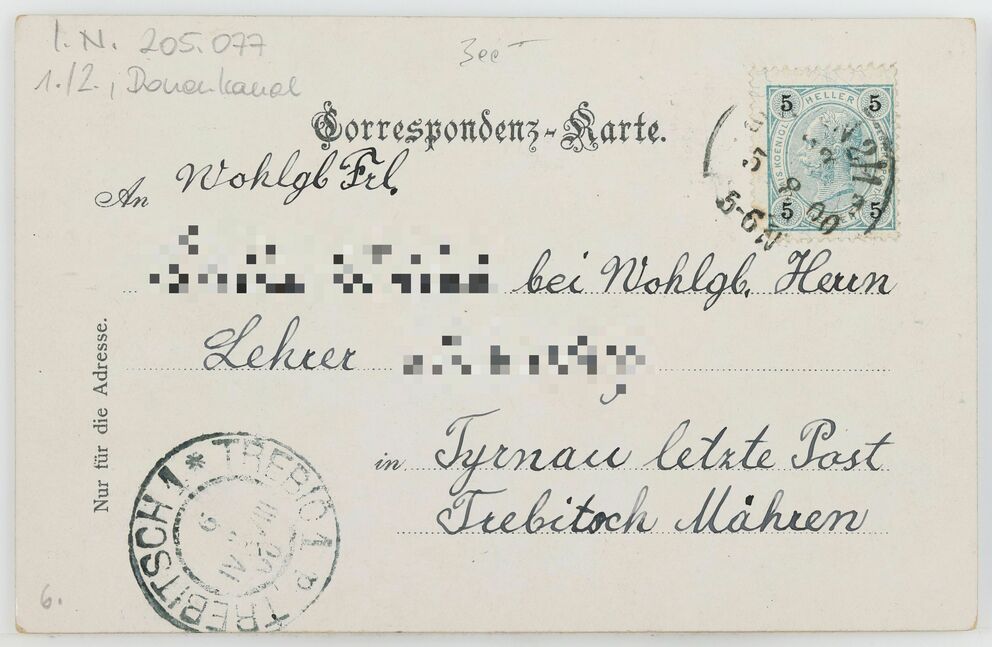 I.N. 205.077
1./2., Donaukanal
Correspondenz-Karte.
An Wohlgb Frl.
bei Wohlgb. Herrn
Lehrer
in Tyrnau letzte Post
Trebitsch Mähren
Nur für die Adresse.
5 HELLER 5
5 5
TREBITSCH 1 * TREBIC 1
6.